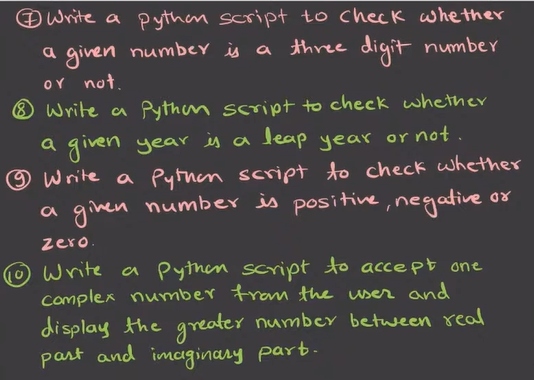 ⑦ Write a python script to check whether
a given number is a three digit number
or not.
⑧ Write a Python script to check whether
a given year is a leap year or not.
⑨ Write a Python script to check whether
a given number is positive, negative or
zero.
⑩ Write a Python script to accept one
complex number from the user and
display the greater number between real
part and imaginary part.